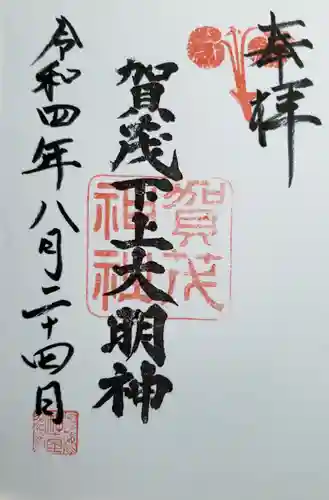 奉拝
賀茂下上大明神
賀茂神社
令和四年八月二十四日